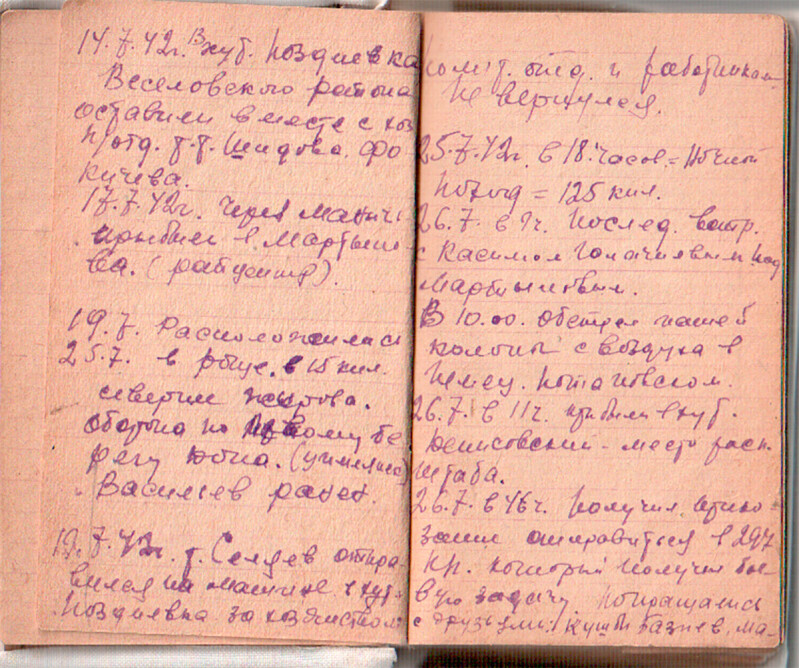 14.7.42г. В хут. Позднеевка
Веселовского района
оставили вместе с хоз
п/отд. т.т. Шидова. Фо
кичева.
17.7.42г. Через Маныч
прибыли в Мартыно-
ва. (райцентр).
19.7. Расположились
25.7. в роще. в 15 кил.
севернее
Оборона по левому бе
регу Дона. (учились)
Васильев ранен.
19.7.42г. т. Селяев отпра-
вился на машине в хут.
Позднеевка за хозяйством
ком. т. отд. и работникам
Не вернулся.
25.7.42г. в 18 часов = Ночной
поход = 125 кил.
26.7. в 9ч. Послед. встр.
с Касимом под
Мартыновым.
В 10.00. Обстрел нашей
колоны с воздуха в
Немец. Потаповском.
26.7. в 11ч. прибыли в хут.
Денисовский - место расп.
штаба.
26.7. в 16ч. Получил прика-
зание отправиться в 297
кп. который получил бое-
вую задачу. Попращались
с друзьями. Кушби Базиев, Ма-